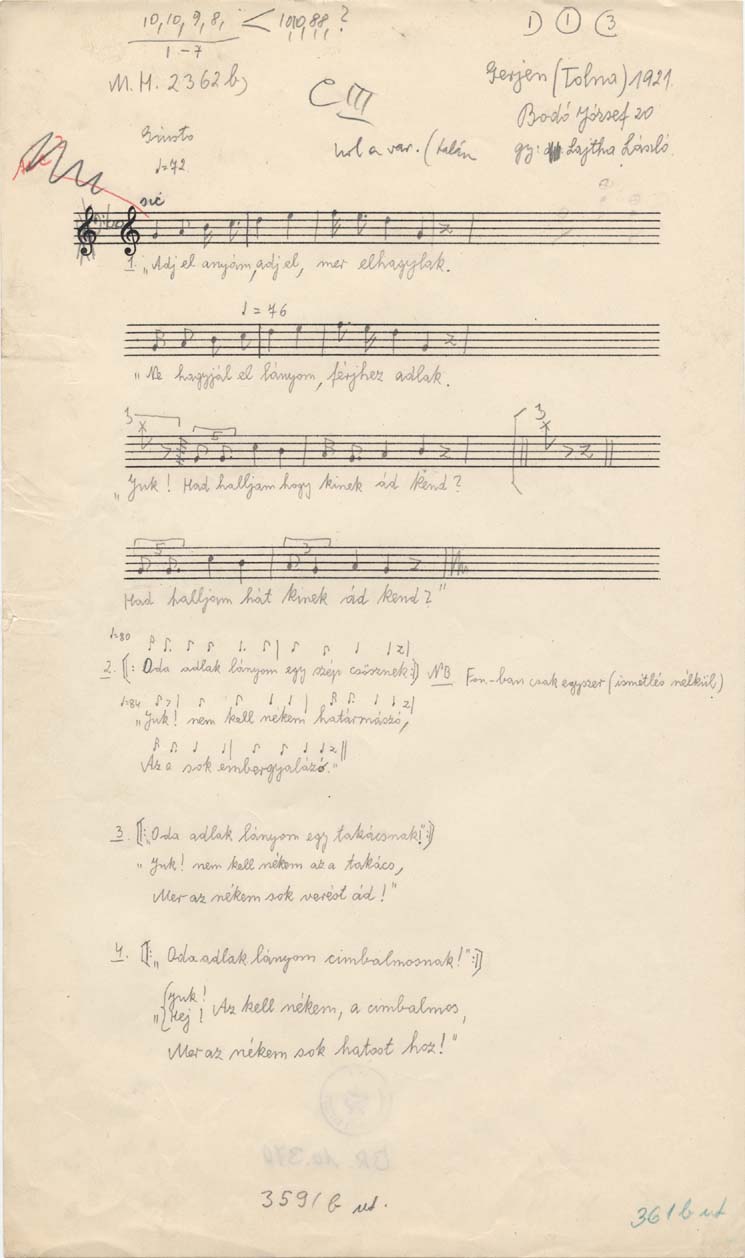 10, 10, 9, 8, < 10,10,8,8, ?
1-7
1) 1 3
M.H. 2362 b)
C III
Gerjen (Tolna) 1921.
Bodó József 20
gy: Lajtha László.
hol a var. (talán
Giusto
♩=72.
sic
1. „Adj el anyám, adj el, mer elhagylak.
♩ = 76
„Ne hagyjál el lányom, férjhez adlak.
3
5
3
„Juk! Had halljam hogy kinek ád kend?
5
3
Had halljam hát kinek ád kend?"
♩=80
2. [(: Oda adlak lányom egy szép csősznek:)] NB Fon-ban csak egyszer (ismétlés nélkül)
♩=84
„Juk! nem kell nékem határmászó,
Az a sok embergyalázó."
3. [(: „Oda adlak lányom egy takácsnak!" :)]
„Juk! nem kell nékem az a takács,
Mer az nékem sok verést ád!"
4. [(: „Oda adlak lányom cimbalmosnak!" :)]
„{Juk!
Hej! Az kell nékem, a cimbalmos,
Mer az nékem sok hatost hoz!"
359/b ut.
361 b ut